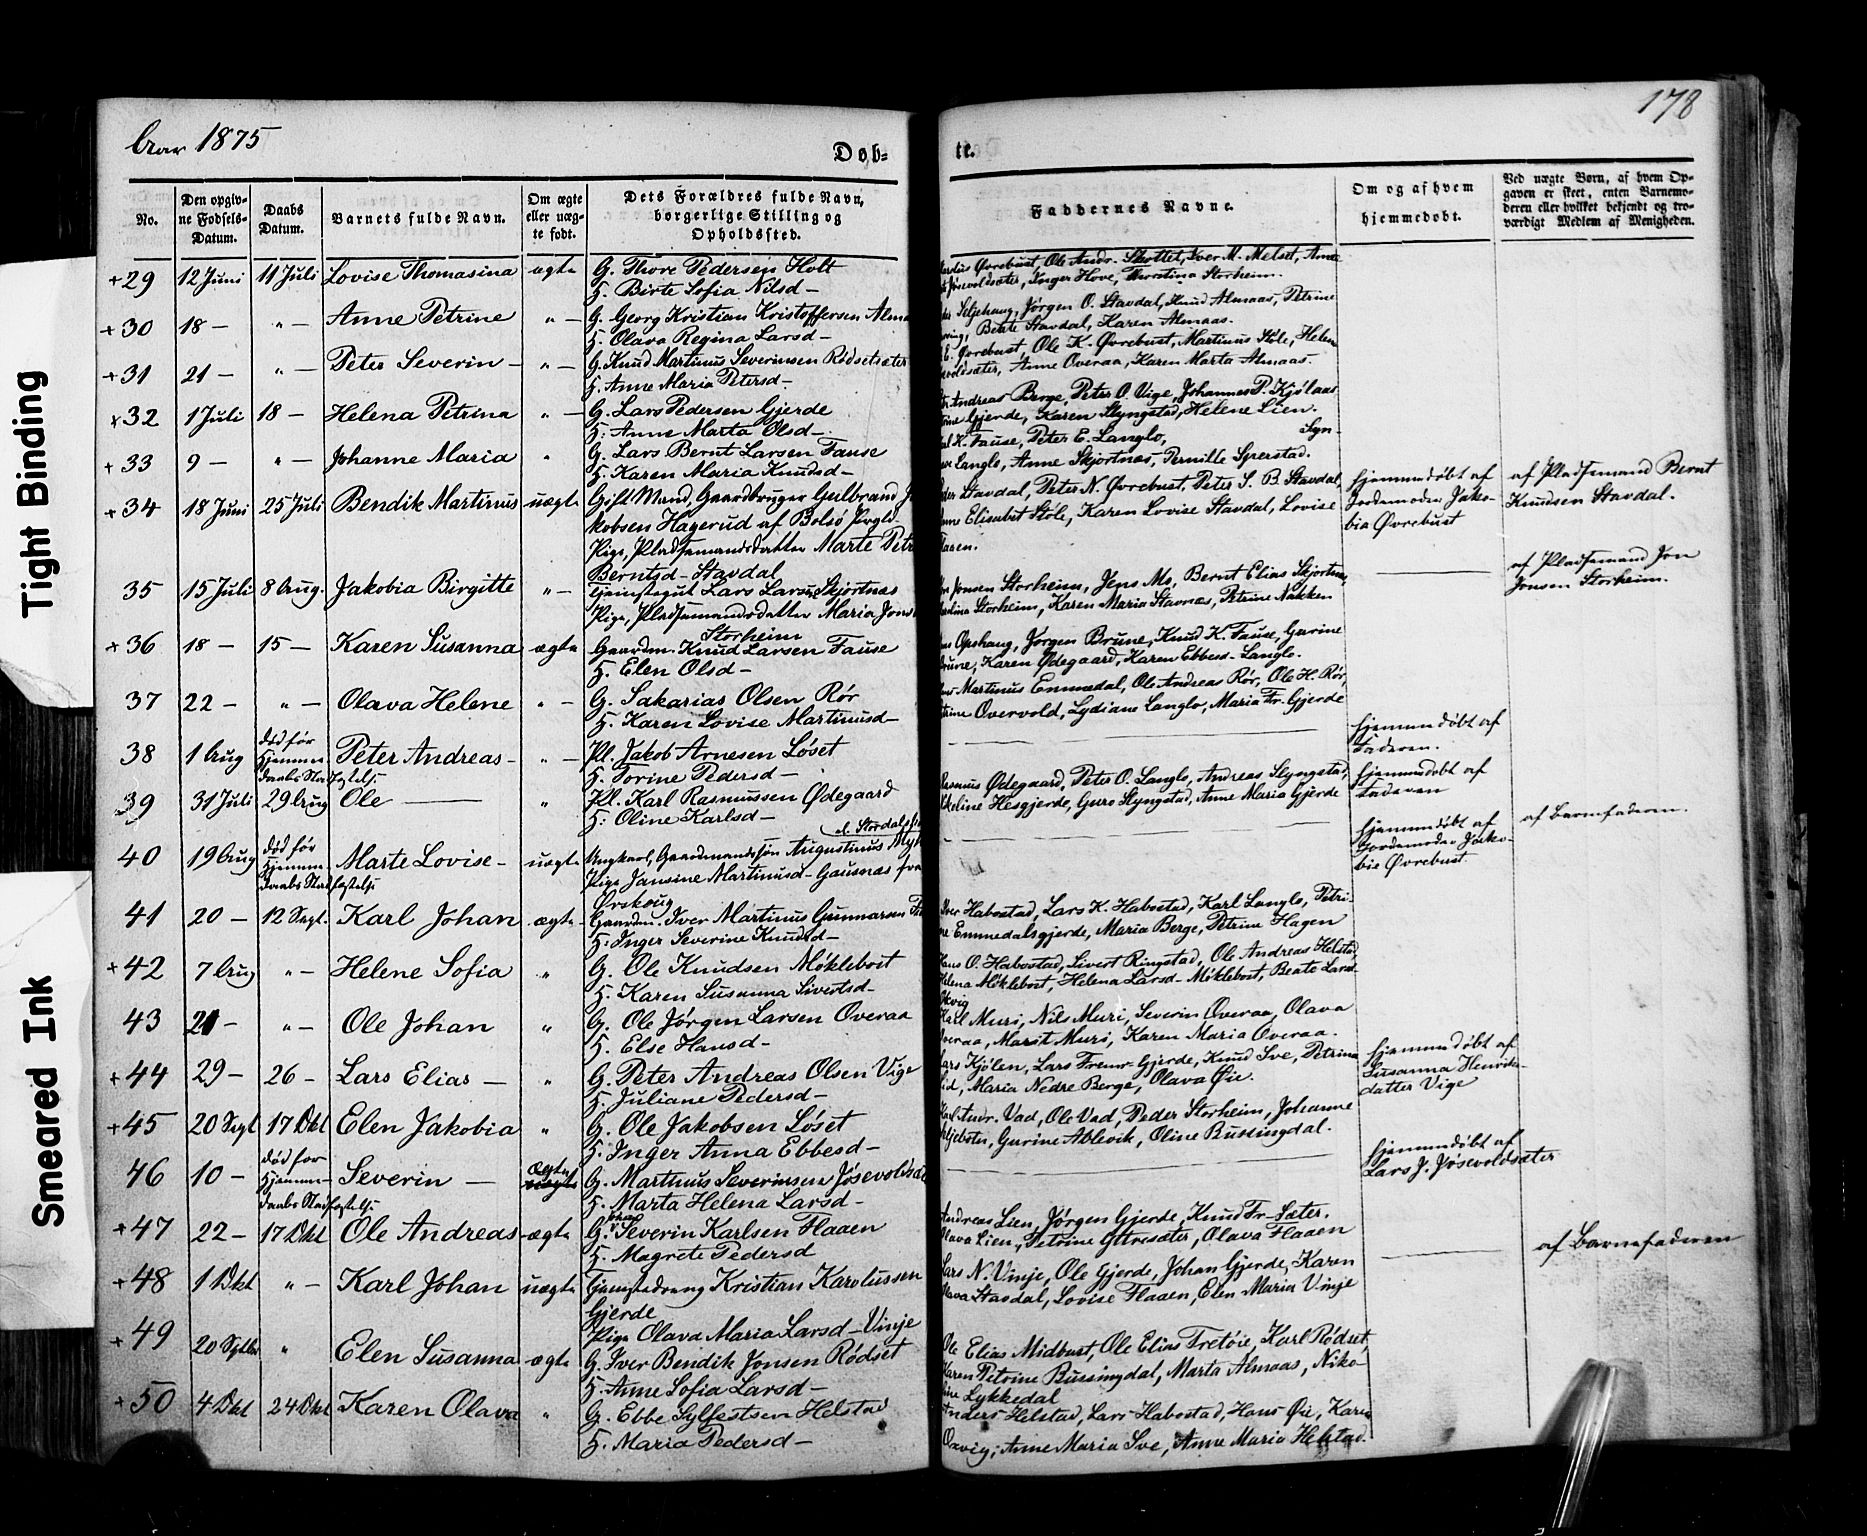 Tight Binding
Smeared Ink
Aar 1875
Døb=
No.
Den opgiv-
ne Fødsels-
Datum.
Daabs
Datum.
Barnets fulde Navn.
Om ægte
eller uæg-
te født.
Dets Forældres fulde Navn,
borgerlige Stilling og
Opholdssted.
+29 12 Juni 11 Juli Lovise Thomasina ægte G. Thore Pedersen Holt
H. Birte Sofia Nilsd-
+30 18 - " - Anne Petrine " - G. Georg Kristian Kristoffersen Alma
H. Olava Regina Larsd-
+31 21 - " - Peter Severin - " - G. Knud Martinus Severinsen Rødsetsæter
H. Anne Maria Petersd-
+32 1 Juli 18 - Helena Petrina " - G. Lars Pedersen Gjerde
H. Anne Marta Olsd-
+33 9 - " - Johanne Maria " G. Lars Bernt Larsen Fause
H. Karen Maria Knudsd-
+34 18 Juni 25 Juli Bendik Martinus uægte Gift Mand, Gaardbruger Gulbrand Ja
kobsen Hagerud af Bolsø Prgld.
Pige, Pladsemandsdatter Marte Petr
Berntsd- Stavdal
35 15 Juli 8 Aug. Jakobia Birgitte " - Tjenestegut Lars Larsen Skjortnæs
Pige, Pladsemandsdatter Maria Jons
Storheim
+36 18 - 15 - Karen Susanna ægte Gaardm. Knud Larsen Fause
H. Elen Olsd-
37 22 - " - Olava Helene " - G. Sakarias Olsen Rør
H. Karen Lovise Martinusd-
38 1 Aug død før
Hjemme-
daabs Stadfæstelse Peter Andreas - " - Pl. Jakob Arnesen Løset
H. Torine Pedersd-
39 31 Juli 29 Aug Ole - " Pl. Karl Rasmussen Ødegaard
H. Oline Karlsd-
40 19 Aug død før
Hjemme-
daabs Stadfæstelse Marte Lovise - uægte Ungkarl, Gaardmandssøn Augustinus
Pige Jansine Martinusd- Gausnæs fra
Ørskoug
41 20 - 12 Sept. Karl Johan ægte Gaardm. Iver Martinus Gunnarsen
H. Inger Severine Knudsd-
+42 7 Aug " - Helene Sofia " G. Ole Knudsen Møklebost
H. Karen Susanna Sivertsd-
43 21 - " - Ole Johan " G. Ole Jørgen Larsen Overaa
H. Else Hansd-
+44 29 - 26 - Lars Elias - " G. Peter Andreas Olsen Vige
H. Juliane Pedersd-
+45 20 Sept 17 Okt Elen Jakobia " G. Ole Jakobsen Løset
H. Inger Anna Ebbesd-
46 10 - død før
Hjemme-
daabs Stadfæstelse Severin - Ægte
uægte G. Martinus Severinsen Jøsevoldsæ
H. Marta Helena Larsd-
+47 22 - 17 Okt Ole Andreas - ægte G. Johan Severin Karlsen Flaaen
H. Magrete Pedersd
+48 1 Okt " - Karl Johan uægte Tjenestedreng Kristian Karolussen
Gjerde
Pige Olava Maria Larsd- Vinje
+49 20 Septbr " Elen Susanna ægte G. Iver Bendik Jonsen Rødset
H. Anne Sofia Larsd-
+50 4 Okt 24 Okt Karen Olava " G. Ebbe Sylfestsen Helstad
H. Maria Pedersd-
178
te.
Faddernes Navne.
Om og af hvem
hjemmedøbt.
Ved uægte Børn, af hvem Op-
gaven er skeet, enten Barnemo-
deren eller hvilket bekjendt og tro-
værdigt Medlem af Menigheden.
Øvrebust, Ole Andr. Skottet, Iver M. Melset, Anne
Jøsevoldsæter, Inger Hove, Thorstina Storheim.
Seljehaug, Jørgen O. Stavdal, Knud Almaas, Petrine
Beate Stavdal, Karen Almaas.
Øvrebust, Ole K. Øvrebust, Martinus Støle, Helen
Anne Overaa, Karen Marta Almaas.
Andreas Berge, Peter O. Vige, Johannes P. Kjølaas
Gjerde, Karen Slyngstad, Helene Lien.
K. Fause, Peter E. Langlo,
Langlo, Anne Skjortnæs, Pernille Sperstad.
Stavdal, Peter N. Øvrebust, Peter S. B. Stavdal,
Elisabet Støle, Karen Lovise Stavdal, Lovise
hjemmedøbt af
Jordemoder Jako-
bia Øvrebust
af Pladsemand Bernt
Knudsen Stavdal.
Jonsen Storheim, Jens Mo, Bernt Elias Skjortnæs,
Storheim, Karen Maria Stavnæs, Petrine Nakken
af Pladsemand Jon
Jonsen Storheim.
Opshaug, Jørgen Brune, Knud K. Fause, Gurine
Brune, Karen Ødegaard, Karen Ebbesd- Langlo.
Martinus Emmedal, Ole Andreas Rør, Ole H. Rør,
Overvold, Lydiane Langlo, Maria Fr. Gjerde
hjemmedøbt af
Faderen.
Rasmus Ødegaard, Peter O. Langlo, Andreas Slyngstad,
Hesgjerde, Guro Slyngstad, Anne Maria Gjerde
hjemmedøbt af
Faderen
hjemmedøbt af
Jordemoder Jako-
bia Øvrebust.
af Barnefaderen.
Iver Habostad, Lars K. Habostad, Karl Langlo, Petri-
ne Emmedalsgjerde, Maria Berge, Petrine Hagen
Hans O. Habostad, Sivert Ringstad, Ole Andreas Helstad,
Helena Møklebost, Helena Larsd- Møklebost, Beate Larsd-
Karl Muri, Nils Muri, Severin Overaa, Olava
Overaa, Marit Muri, Karen Maria Overaa.
Lars Kjølen, Lars Gjerde, Knud Sve, Petrina
Maria Nedre Berge, Olava Øie.
hjemmedøbt af
Susanna Henriks-
datter Vige
Karl Andr. Vad, Ole Vad, Peder Storheim, Johanne
Gurine Ablevik, Oline Bussingdal.
hjemmedøbt af
Lars J. Jøsevoldsæter
Andreas Lien, Jørgen Gjerde, Knud Fr- Sæter.
Olava Lien, Petrine Ytresæter, Olava Flaaen
Lars N. Vinje, Ole Gjerde, Johan Gjerde, Karen
Olava Stavdal, Lovise Flaaen, Elen Maria Vinje
af Barnefaderen
Ole Elias Midbust, Ole Elias Tretøie, Karl Rødset,
Karen Petrine Bussingdal, Marta Almaas, Niko-
line Lykkedal
Anders Helstad, Lars Habostad, Hans Øie, Karen
Anne Maria Sve, Anne Maria Helstad.